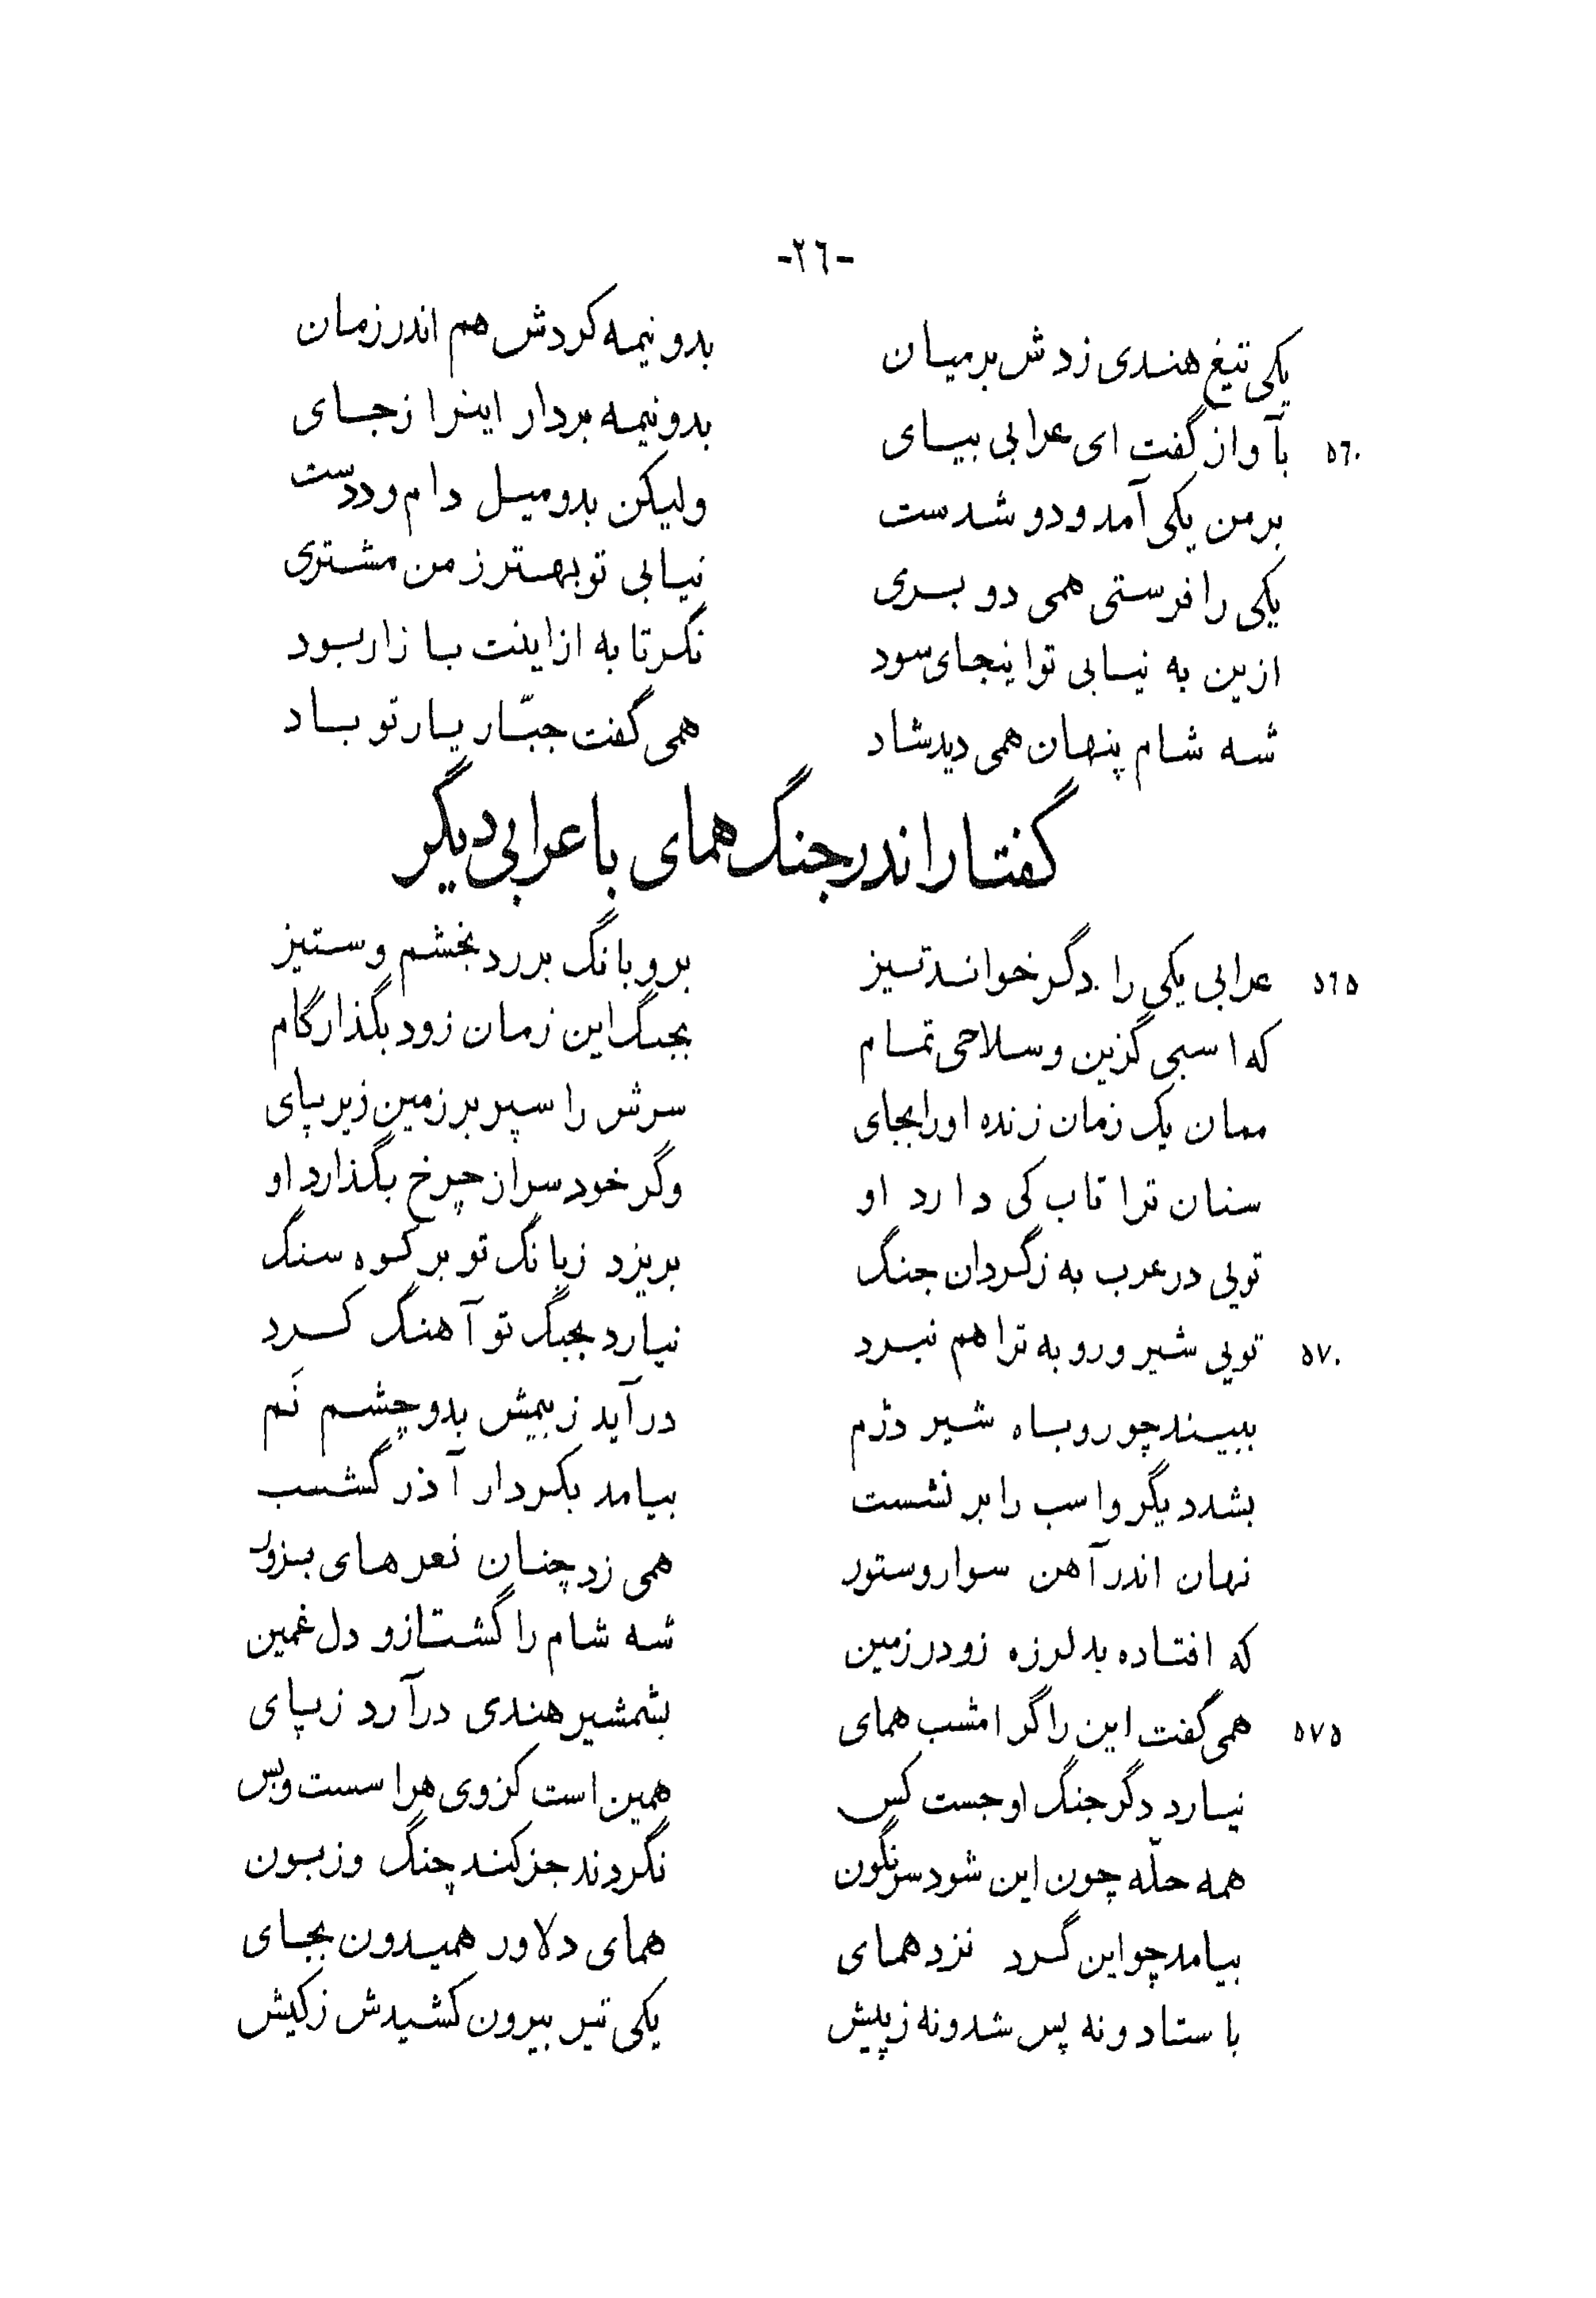 -٢٦-
یکی تیغ هندی زدش بر میان بدو نیمه کردش هم اندر زمان
٥٦٠ بآواز گفت ای عرابی بیای بدو نیمه بردار اینرا ز جای
بر من یکی آمد و دو شدست ولیکن بدو میل دام و ددست
یکی را فرستی همی دو بری نیابی تو بهتر ز من مشتری
ازین به نیابی تو اینجای سود نگر تا به از اینت بازار بود
شه شام پنهان همی دید شاد همی گفت جبّار یار تو باد
گفتار اندر جنگ همای با عرابی دیگر
٥٦٥ عرابی یکی را دگر خواند تیز برو بانگ برزد بخشم و ستیز
که اسبی گزین و سلاحی تمام بجنگ این زمان زود بگذار گام
ممان یک زمان زنده اورا بجای سرش را سپر بر زمین زیر پای
سنان ترا تاب کی دارد او وگر خود سر از چرخ بگذارد او
تویی در عرب به ز گردان جنگ بریزد ز بانگ تو بر کوه سنگ
٥٧٠ تویی شیر و روبه ترا هم نبرد نیارد بجنگ تو آهنگ کرد
ببیند چو روباه شیر دژم درآید ز بیمش بدو چشم نَم
بشد دیگر و اسب را بر نشست بیامد بکردار آذر گشسب
نهان اندر آهن سوار و ستور همی زد چنان نعرهای بزور
که افتاده بد لرزه زو در زمین شه شام را گشت ازو دل غمین
٥٧٥ همی گفت این را گر امشب همای بشمشیر هندی درآرد ز پای
نیارد دگر جنگ او جست کس همین است کزوی هراسست و بس
همه حلّه چون این شود سرنگون نگردند جز کند چنگ و زبون
بیامد چو این گرد نزد همای همای دلاور همیدون بجای
باستاد و نه پس شد و نه ز پیش یکی تیر بیرون کشیدش ز کیش